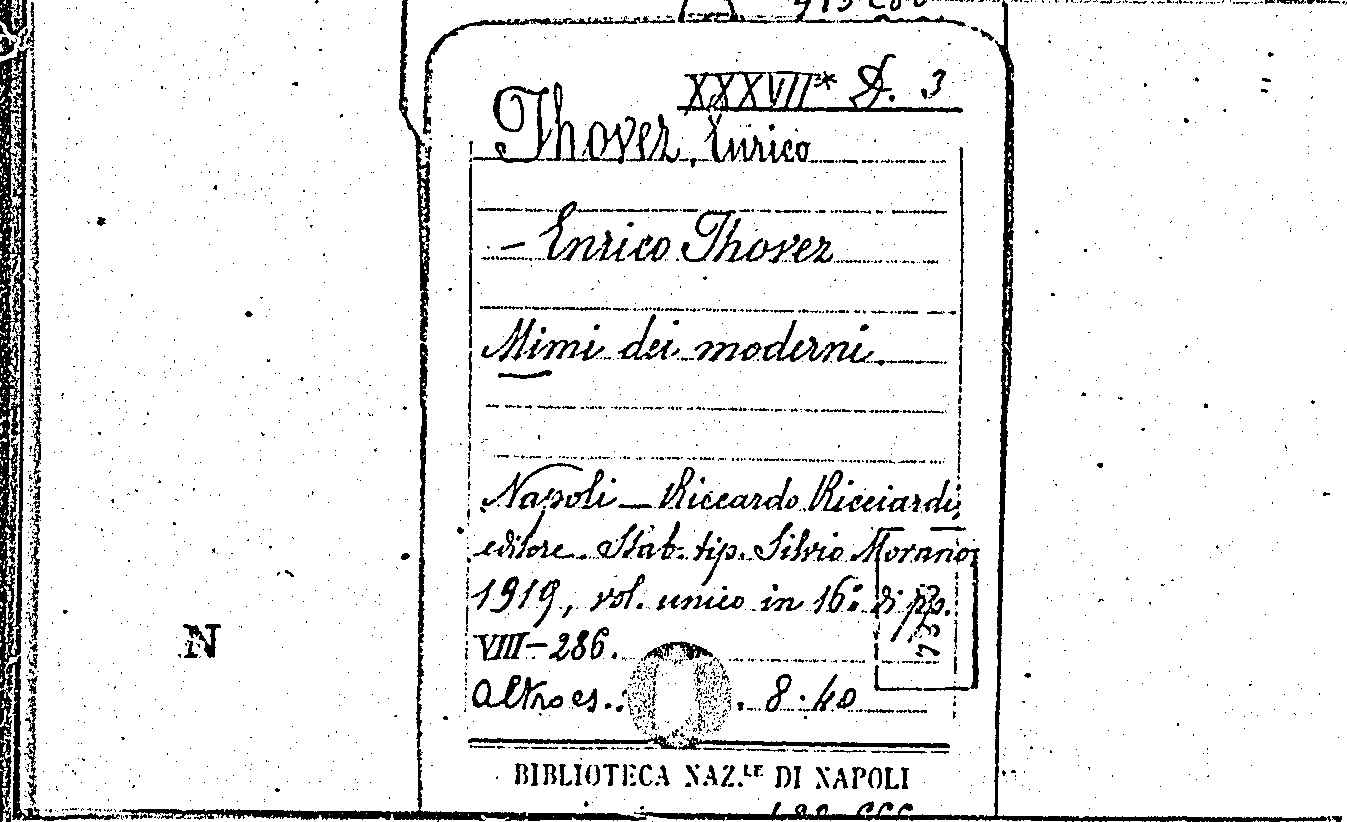 XXXVII* D. 3
Thovez, Enrico
– Enrico Thovez
Mimi dei moderni.
Napoli – Riccardo Ricciardi,
editore. Stab. tip. Silvio Morano,
1919, vol. unico in 16º di pp.
VIII–286.
Altro es.: . 8.40
N
BIBLIOTECA NAZ.LE DI NAPOLI